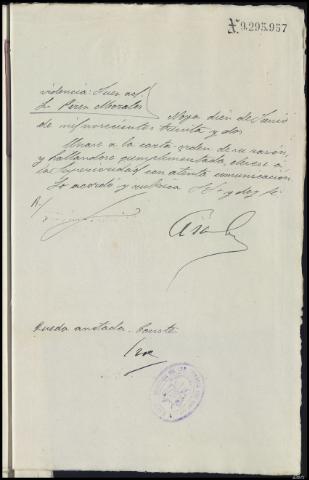 9.295.957
Juez
Sr. Perez Morales
Moya diez de Junio
de mil novecientos treinta y dos
Unase a la carta-orden de su razón,
y hallandose cumplimentada, elevese a
la Superioridad con atenta comunicación
Lo acordó y rubrica S. Sª y doy fe
Queda anotada. Conste